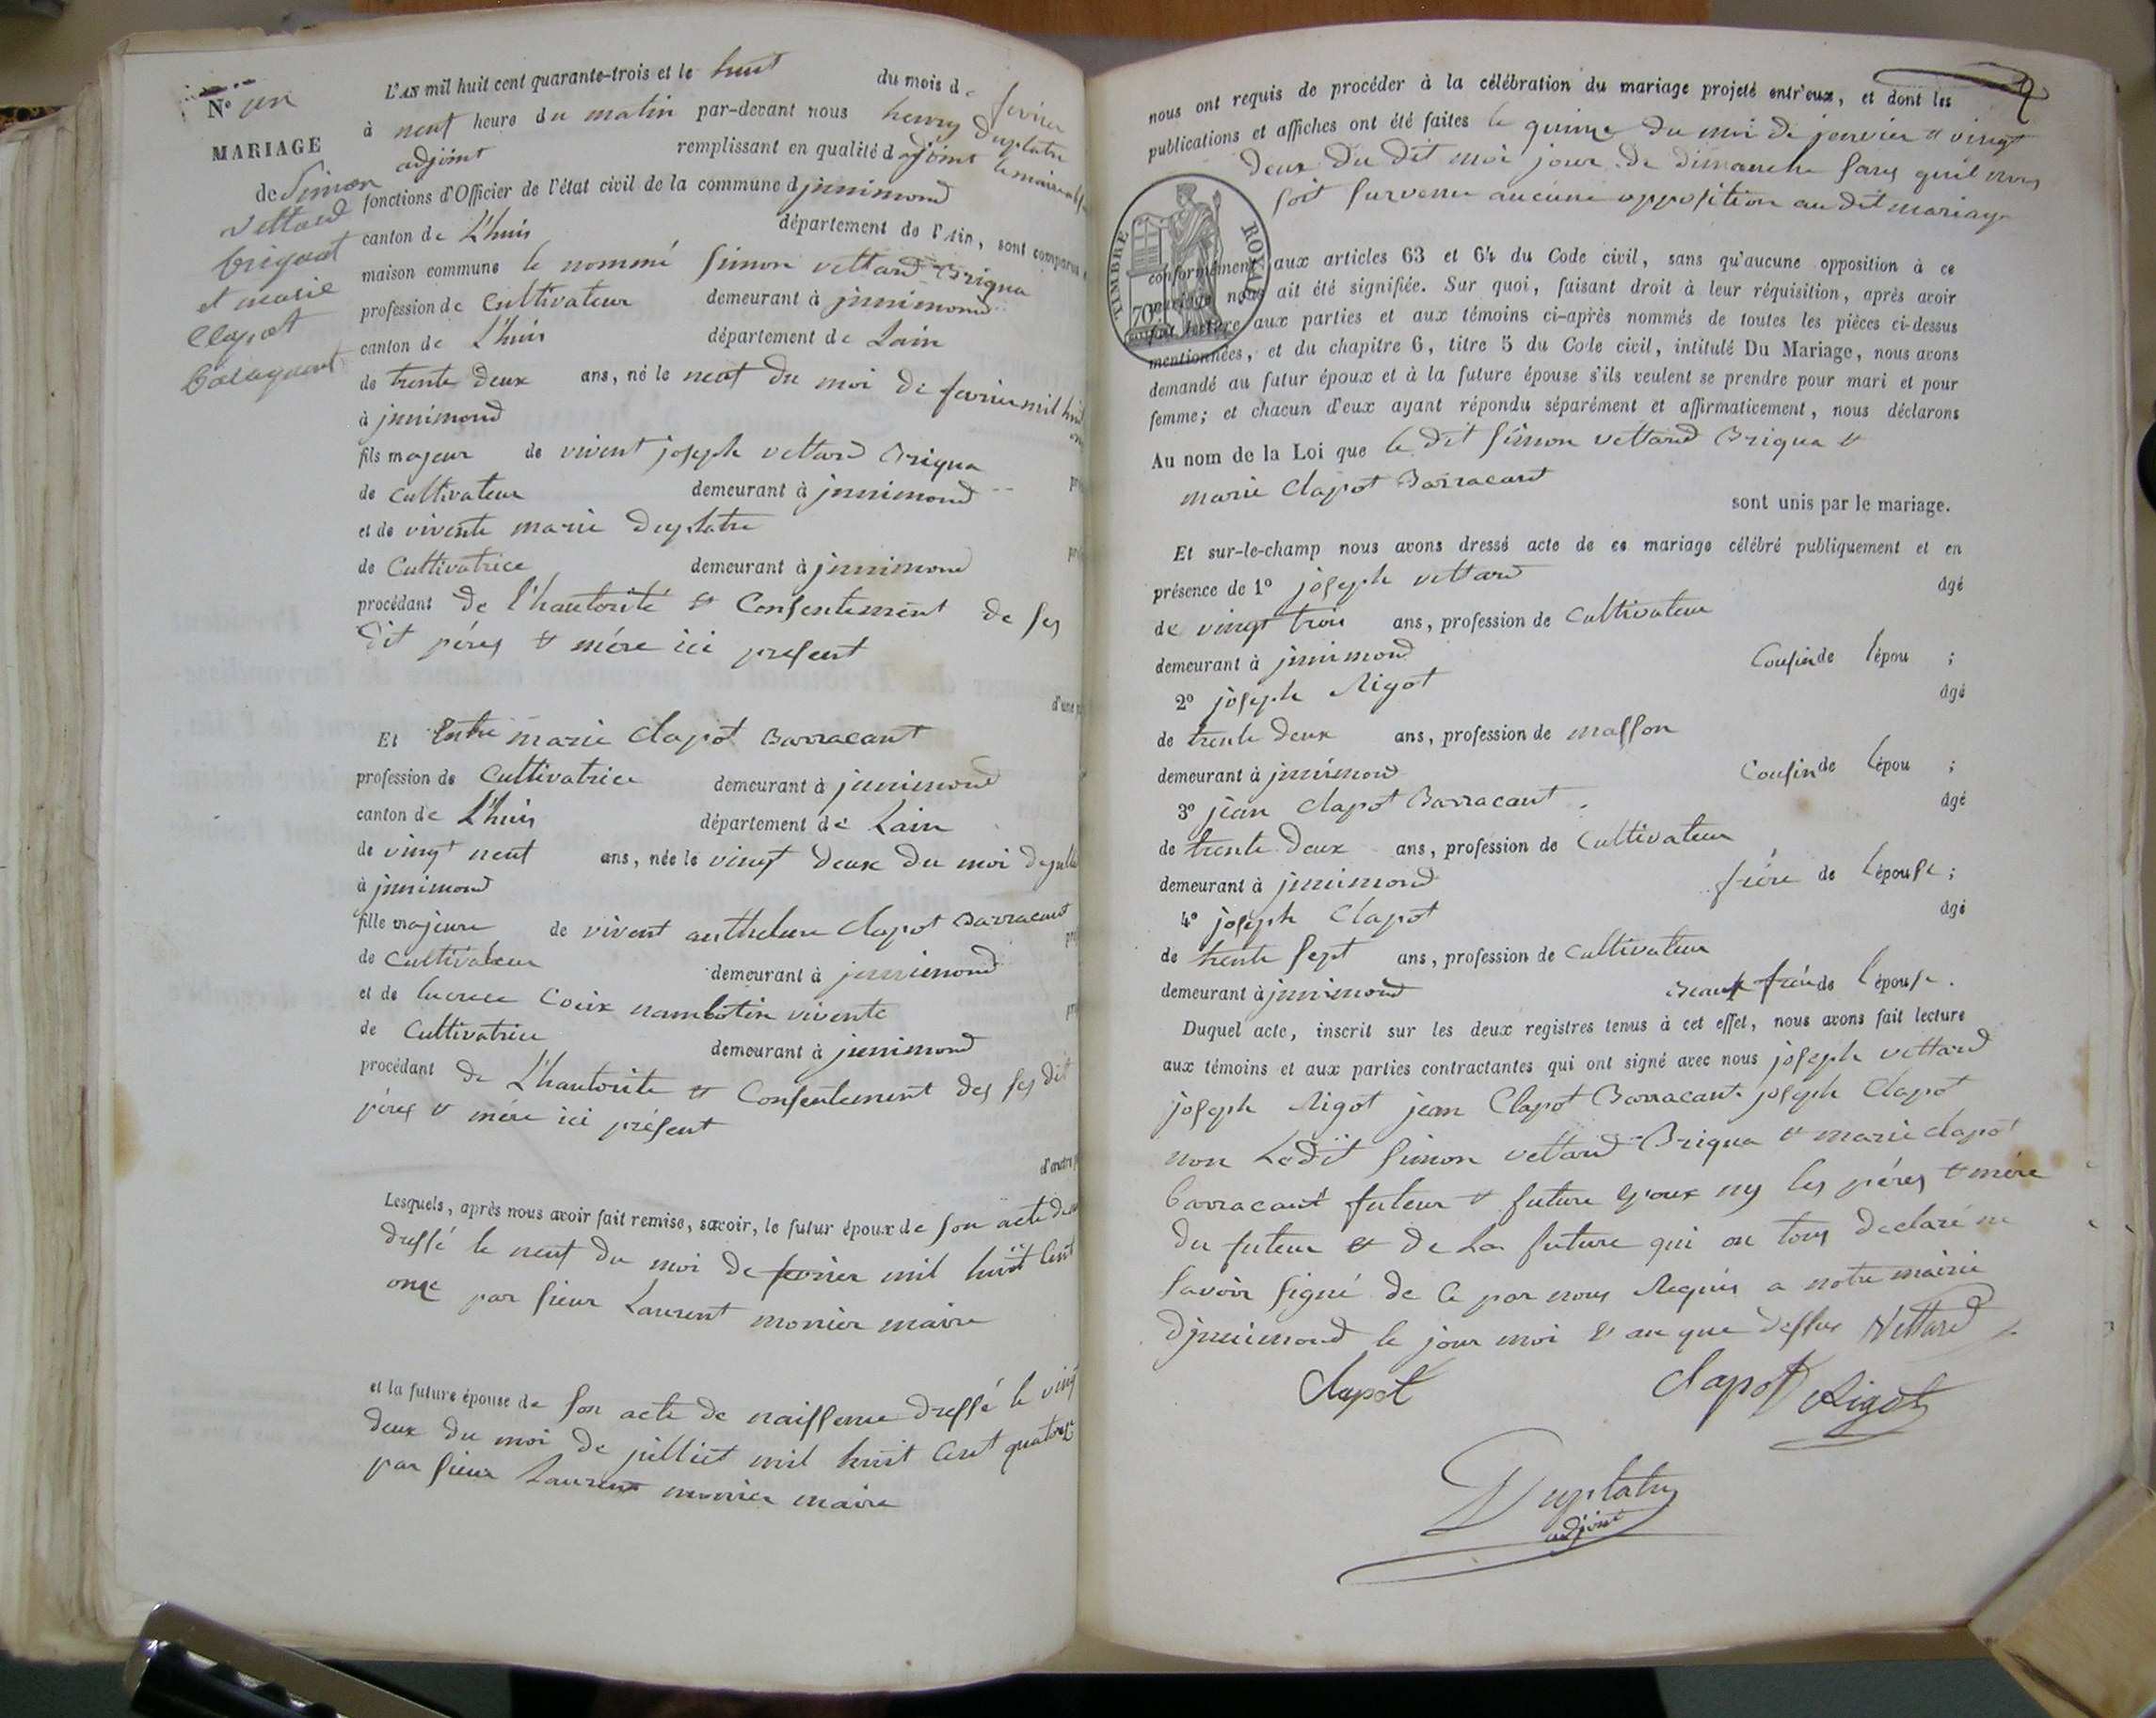 N° un
MARIAGE
de Simon
vettard
briquat
et marie
Clapot
L'AN mil huit cent quarante-trois et le huit du mois de fevrier
à neuf heure du matin par-devant nous henry Duplatre
adjoint remplissant en qualité d adjoint
fonctions d'Officier de l'état civil de la commune d jnnimond
canton de L'huis département de l'Ain, sont comparus
maison commune le nommé Simon vettard Briqua
profession de Cultivateur demeurant à jnnimond
canton de L'huis département de Lain
de trente deux ans, né le neuf du moi de fevrier mil huit
à jnnimond
fils majeur de vivent joseph vettard Briqua
de Cultivateur demeurant à jnnimond
et de vivente marie Duplatre
de Cultivatrice demeurant à jnnimond
procédant de l'hautorité et Consentement de ses
dit pérés et mére ici présent
d'une
Et Entre marie Clapot Barracant
profession de Cultivatrice demeurant à jnnimond
canton de L'huis département de Lain
de vingt neuf ans, née le vingt deux du moi de
à jnnimond
fille majeure de vivent anthelme Clapot Barracant
de Cultivateur demeurant à jnnimond
et de lucrece Coux nambotin vivente
de Cultivatrice demeurant à jnnimond
procédant de L'hautorite et Consentement des ses dit
pérés et mére ici présent
d'autre
Lesquels, après nous avoir fait remise, savoir, le futur époux de son acte de
dressé le neuf du moi de fevrier mil huit Cent
onze par sieur Laurent monier maire
et la future épouse de son acte de naissense dressé le vingt
deux du moi de julliet mil huit Cent quatorze
par sieur Laurent monier maire
2
nous ont requis de procéder à la célébration du mariage projeté entr'eux, et dont les
publications et affiches ont été faites le quinze du moi de jenvier et vingt
deux du dit moi jour de dimanche sans quil nous
soit survenu aucune opposition au dit mariage
TIMBRE ROYAL
70
conformément aux articles 63 et 64 du Code civil, sans qu'aucune opposition à ce
mariage nous ait été signifiée. Sur quoi, faisant droit à leur réquisition, après avoir
fait lecture aux parties et aux témoins ci-après nommés de toutes les pièces ci-dessus
mentionnées, et du chapitre 6, titre 5 du Code civil, intitulé Du Mariage, nous avons
demandé au futur époux et à la future épouse s'ils veulent se prendre pour mari et pour
femme; et chacun d'eux ayant répondu séparément et affirmativement, nous déclarons
Au nom de la Loi que le dit Simon vettard Briqua et
marie Clapot Barracant
sont unis par le mariage.
Et sur-le-champ nous avons dressé acte de ce mariage célébré publiquement et en
présence de 1° joseph vettard âgé
de vingt trois ans, profession de Cultivateur
demeurant à jnnimond Cousin de lépou ;
2° joseph Rigot âgé
de trente deux ans, profession de masson
demeurant à jnnimond Cousin de lépou ;
3° jean Clapot Barracant âgé
de trente deux ans, profession de Cultivateur
demeurant à jnnimond frére de lépouse ;
4° joseph Clapot âgé
de trente sept ans, profession de Cultivateur
demeurant à jnnimond Beaux frére de lépouse.
Duquel acte, inscrit sur les deux registres tenus à cet effet, nous avons fait lecture
aux témoins et aux parties contractantes qui ont signé avec nous joseph vettard
joseph Rigot jean Clapot Barracant joseph Clapot
non Ledit Simon vettard Briqua et marie Clapot
barracant futeur et future Epoux ny les pérés et mére
du futeur et de La future qui on tous declaré ne
savoir signé de Ce par nous Requis a notre mairie
Djnnimond le jour moi et an que dessus Vettard
Clapot Clapot Rigot
Duplatre
adjoint